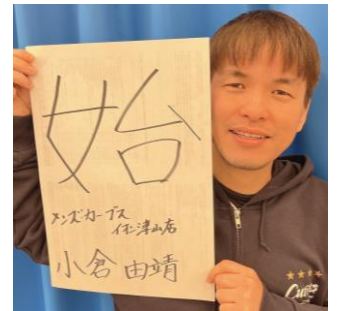 始
メンズ・カーブス
イオン津山店
小倉 由靖